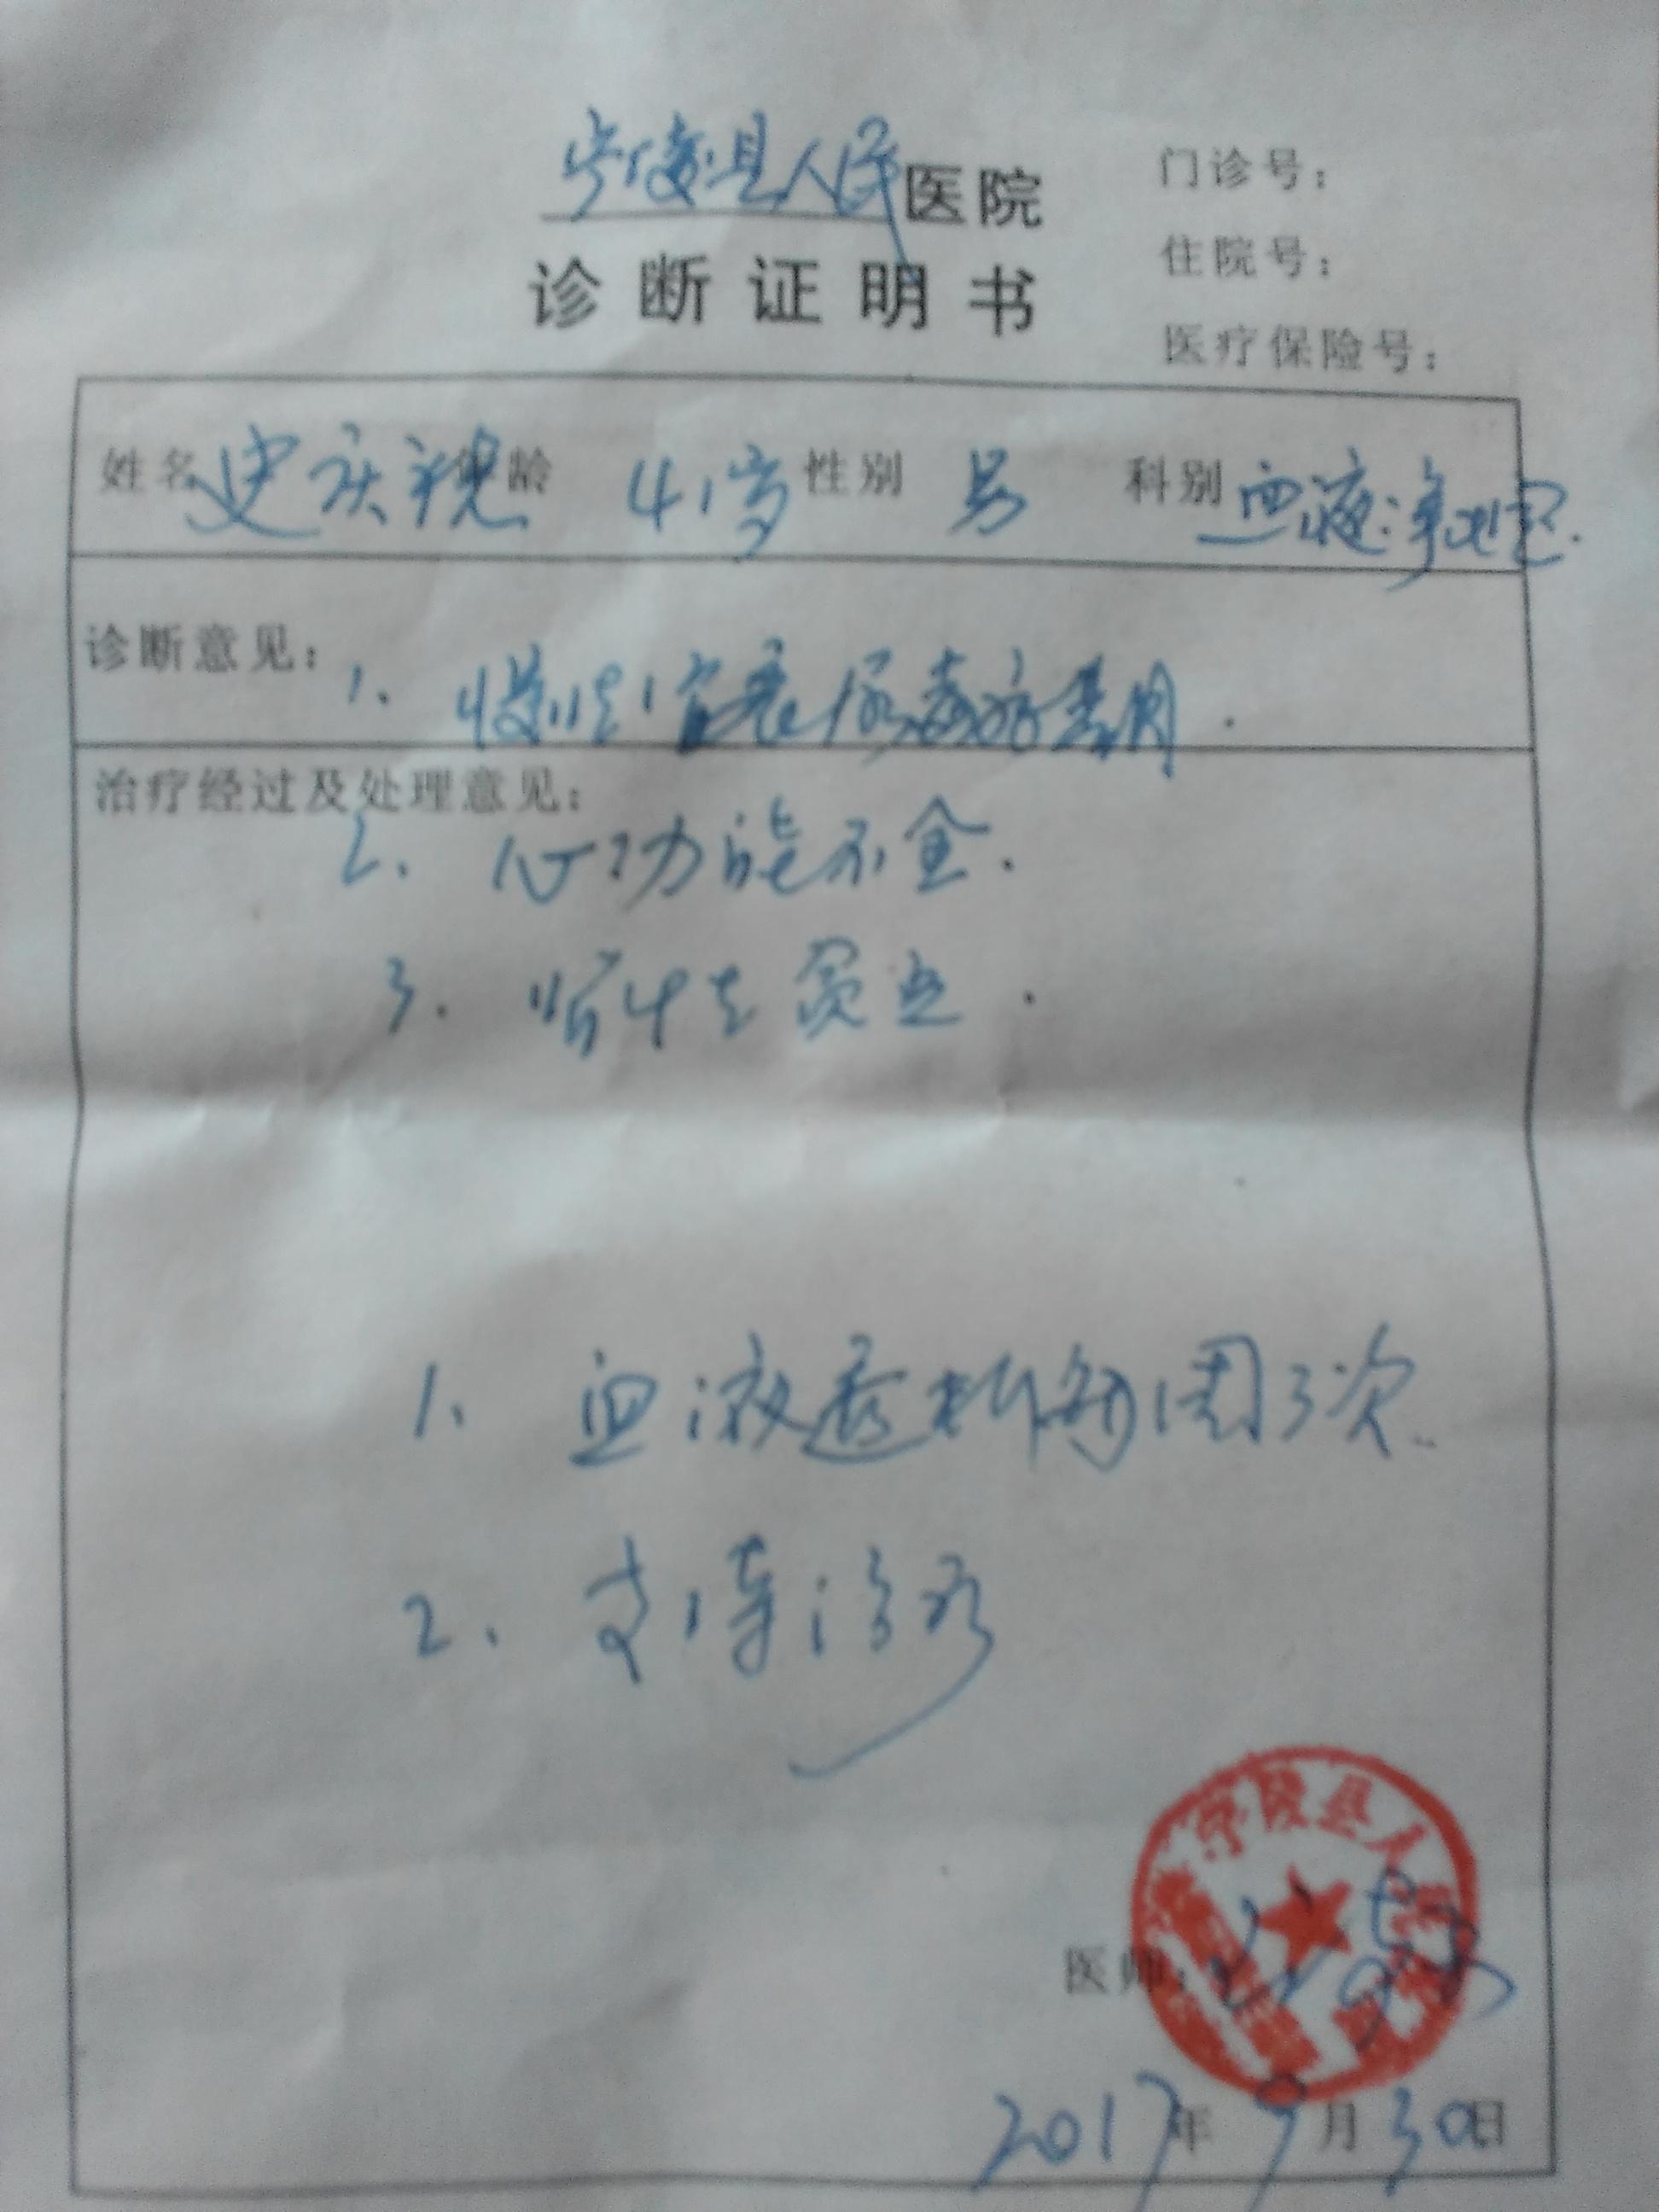 宁陵县人民医院
诊断证明书
门诊号：
住院号：
医疗保险号：
姓名 史庆祝 年龄 41岁 性别 男 科别 血液净化室.
诊断意见：
1. 慢性肾衰尿毒症期.
治疗经过及处理意见：
2. 心功能不全.
3. 肾性贫血.
1. 血液透析每周3次.
2. 支持治疗
宁陵县人民
医师：
2017年9月30日